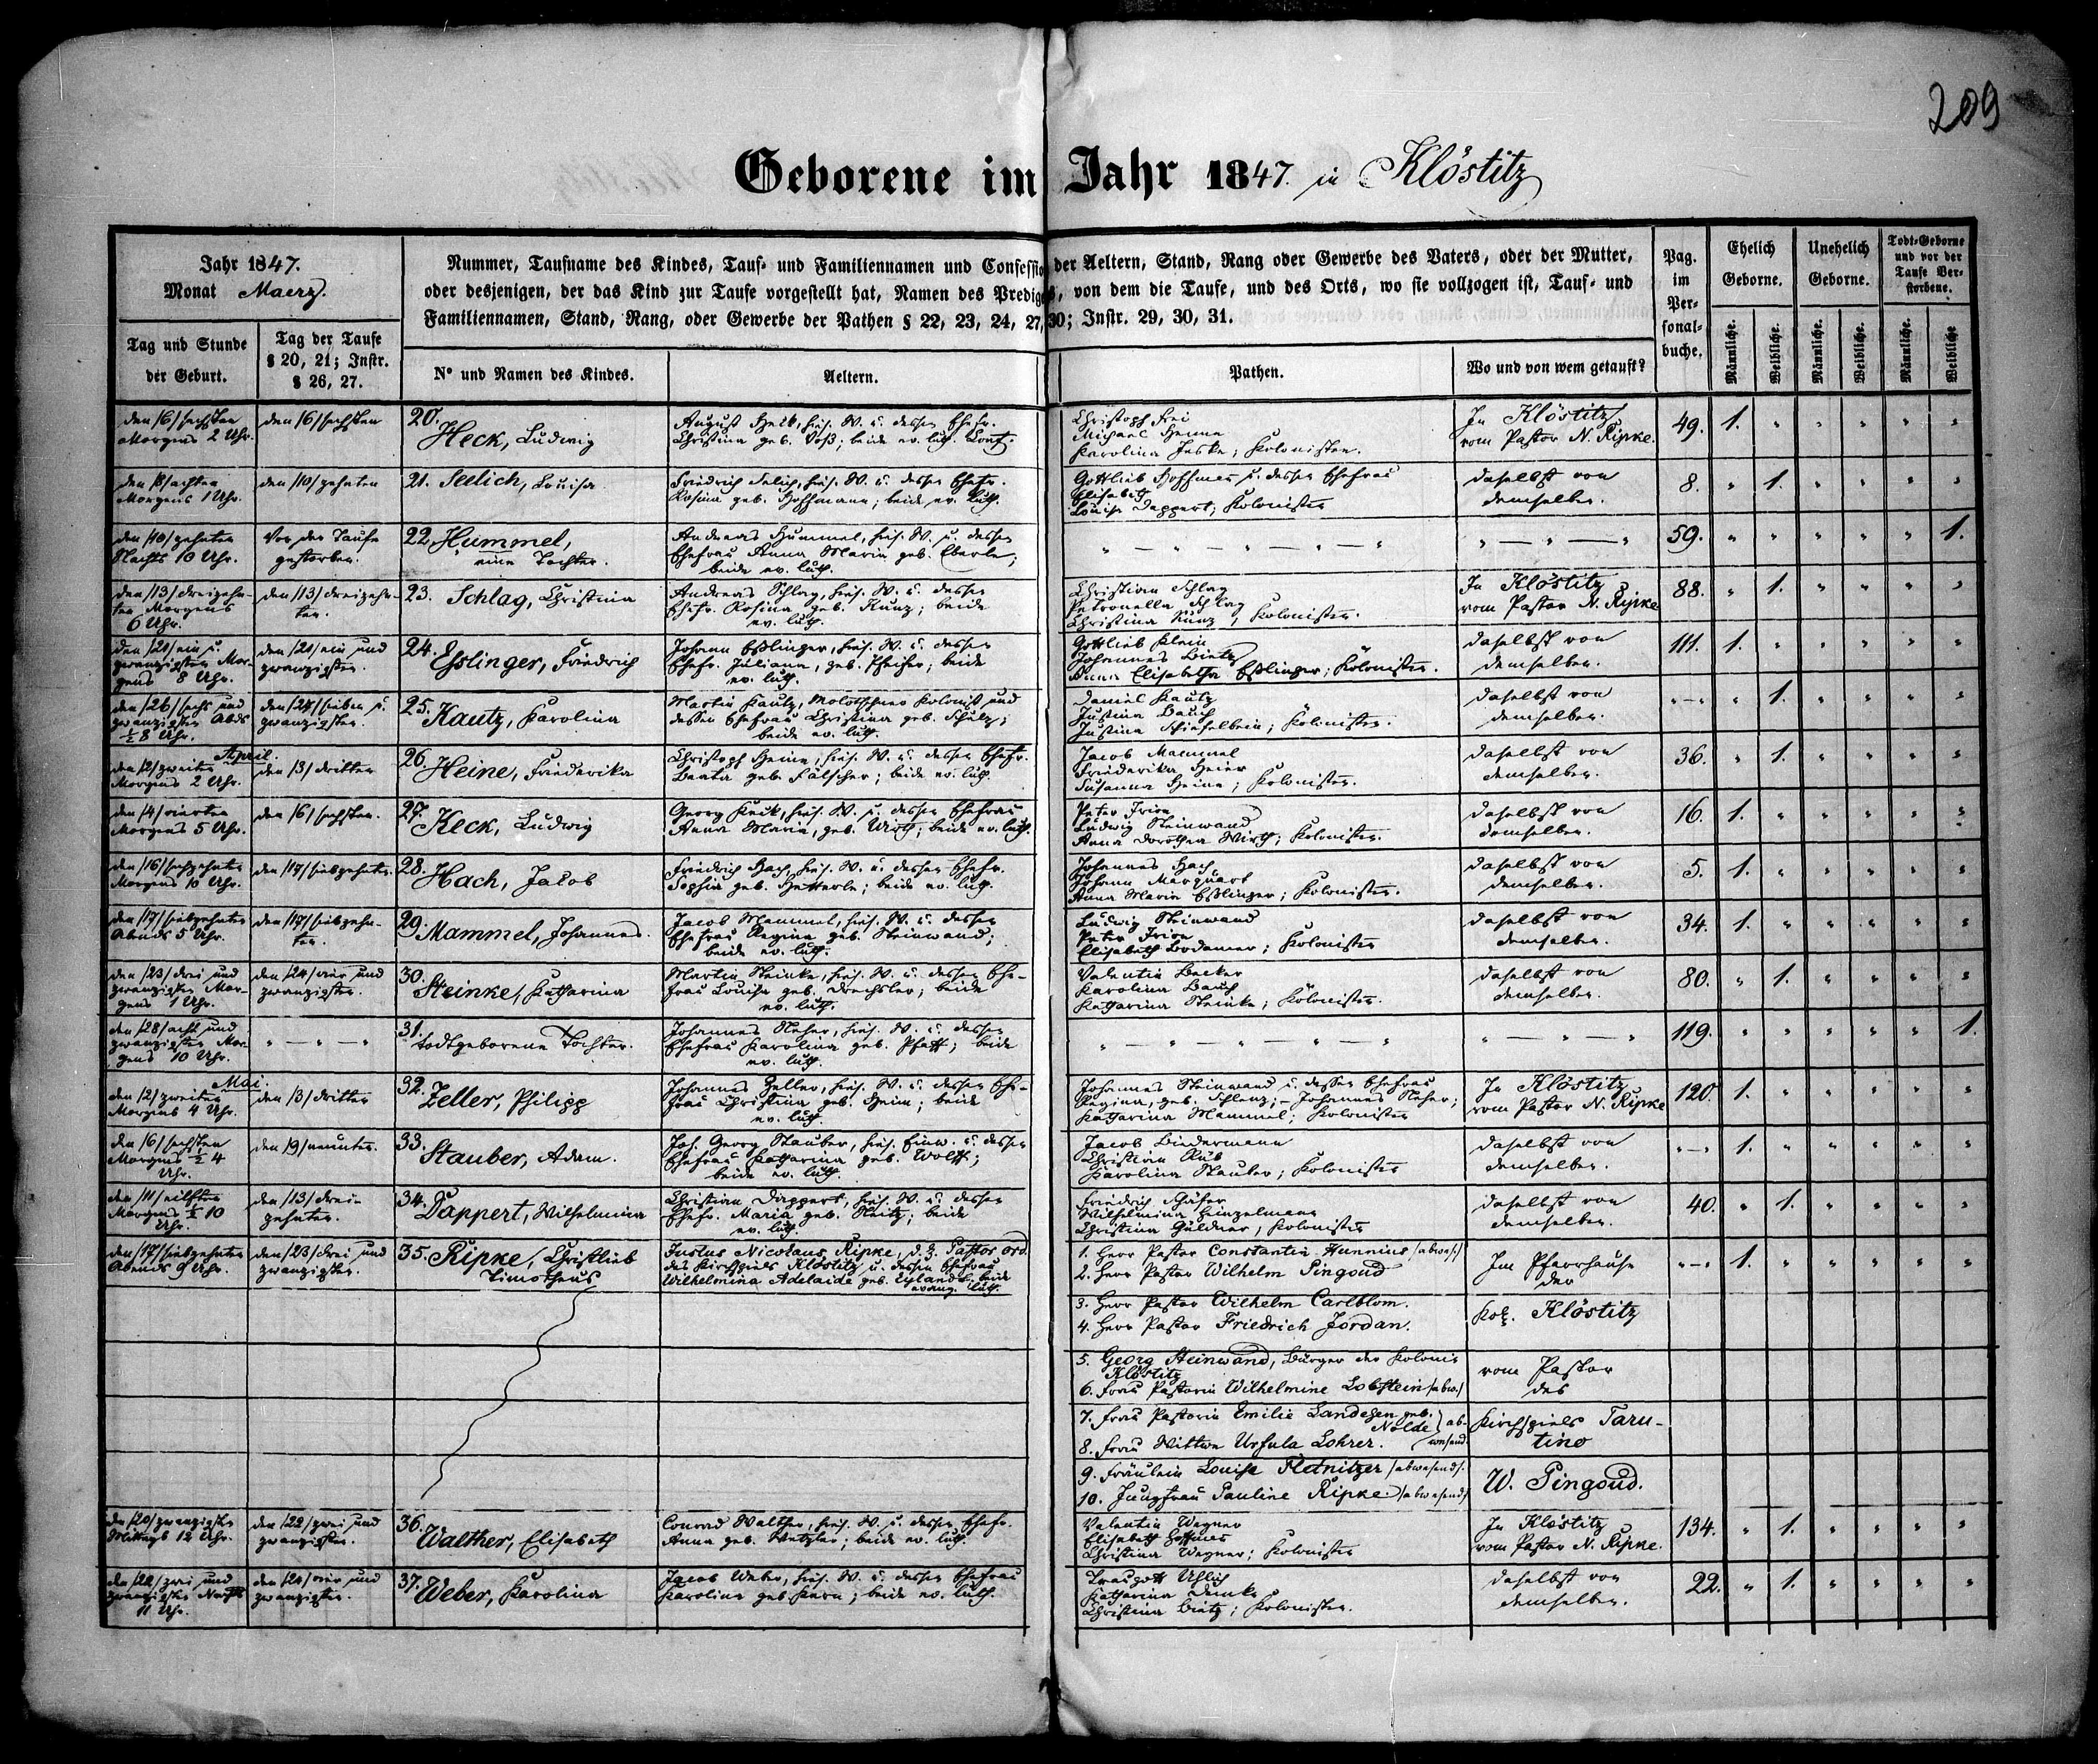 209
Geborene im Jahr 1847. in Klöstitz
Jahr 1847.
Monat Maerz.
Nummer, Taufname des Kindes, Tauf- und Familiennamen und Confession der Aeltern, Stand, Rang oder Gewerbe des Vaters, oder der Mutter,
oder desjenigen, der das Kind zur Taufe vorgestellt hat, Namen des Predigers, von dem die Taufe, und des Orts, wo sie vollzogen ist, Tauf- und
Familiennamen, Stand, Rang, oder Gewerbe der Pathen § 22, 23, 24, 27, 30; Instr. 29, 30, 31.
Pag. im Personalbuche.
Ehelich Geborne.
Unehelich Geborne.
Todt-Geborne und vor der Taufe Verstorbene.
Tag und Stunde der Geburt.
Tag der Taufe § 20, 21; Instr. § 26, 27.
N° und Namen des Kindes.
Aeltern.
Pathen.
Wo und von wem getauft?
Männliche.
Weibliche.
Männliche.
Weibliche.
Männliche.
Weibliche
den /6/ sechsten
Morgens 2 Uhr.
den /6/ sechsten
20.
Heck, Ludwig
August Heck, hies. W. u. dessen Ehefr.
Christina geb. Voß; beide ev. luth. Conf.
Christoph Frei
Michael Henne
Karolina Jeske; Kolonisten.
In Klöstitz
vom Pastor N. Ripke.
49. 1.
den /8/ achten
Morgens 1 Uhr.
den /10/ zehnten
21. Seelich, Louisa
Friedrich Selich, hies. W. u. dessen Ehefr.
Rosina geb. Hoffmann; beide ev. luth.
Gottlieb Hoffmann u. dessen Ehefrau
Elisabeth
Louise Dappert; Kolonisten
daselbst von
demselben.
8. 1.
den /10/ zehnten
Nachts 10 Uhr.
Vor der Taufe
gestorben.
22. Hummel,
eine Tochter.
Andreas Hummel, hies. W. u. dessen
Ehefrau Anna Maria geb. Eberle;
beide ev. luth.
59. 1.
den /13/ dreizehn-
ten Morgens
6 Uhr.
den /13/ dreizehn-
ten.
23. Schlag, Christina
Andreas Schlag, hies. W. u. dessen
Ehefr. Rosina geb. Kunz; beide
ev. luth.
Christian Schlag
Petronella Schlag
Christina Kunz; Kolonisten.
In Klöstitz
vom Pastor N. Ripke
88. 1.
den /21/ ein u.
zwanzigsten Mor-
gens 8 Uhr.
den /21/ ein und
zwanzigsten.
24. Esslinger, Friedrich
Johann Esslinger, hies. W. u. dessen
Ehefr. Juliana, geb. Pfeifer; beide
ev. luth.
Gottlieb Klein
Johannes Bietz
Anna Elisabetha Esslinger; Kolonisten.
daselbst von
demselben.
111. 1.
den /26/ sechs und
zwanzigsten Abds
½8 Uhr.
den /27/ sieben u.
zwanzigsten.
25. Kautz, Karolina
Martin Kautz, Kolonist und
dessen Ehefrau Christina geb. Schulz;
beide ev. luth.
Daniel Kautz
Justina Bauch
Justina Schiefelbein; Kolonisten.
daselbst von
demselben.
1.
April.
den /2/ zweiten
Morgens 2 Uhr.
den /3/ dritten
26. Heine, Friederika
Christoph Heine, hies. W. u. dessen Ehefr.
Beata geb. Fälscher; beide ev. luth.
Jacob Maemmel
Friederika Heier
Susanna Heine; Kolonisten.
daselbst von
demselben.
36. 1.
den /4/ vierten
Morgens 5 Uhr.
den /6/ sechsten.
27. Keck, Ludwig
Georg Keck, hies. W. u. dessen Ehefrau
Anna Maria, geb. Wirth; beide ev. luth.
Peter Irion
Ludwig Steinwand
Anna Dorothea Wirth; Kolonisten.
daselbst von
demselben.
16. 1.
den /16/ sechzehnten
Morgens 10 Uhr.
den /17/ siebzehnten.
28. Hach, Jacob
Friedrich Hach, hies. W. u. dessen Ehefr.
Sophia geb. Hetterle; beide ev. luth.
Johannes Hach
Johann Marquart
Anna Maria Esslinger; Kolonisten.
daselbst von
demselben.
5. 1.
den /17/ siebzehnten
Abends 5 Uhr.
den /17/ siebzehn-
ten.
29. Mammel, Johannes.
Jacob Mammel, hies. W. u. dessen
Ehefrau Regina geb. Steinwand;
beide ev. luth.
Ludwig Steinwand
Peter Irion
Elisabeth Bodamer; Kolonisten
daselbst von
demselben.
34. 1.
den /23/ drei und
zwanzigsten Mor-
gens 1 Uhr.
den /24/ vier und
zwanzigsten.
30. Steinke, Katharina
Martin Steinke, hies. W. u. dessen Ehe-
frau Louisa geb. Drechsler; beide
ev. luth.
Valentin Becker
Karolina Bauch
Katharina Steinke; Kolonisten.
daselbst von
demselben.
80. 1.
den /28/ acht und
zwanzigsten Mor-
gens 10 Uhr.
31. todtgeborene Tochter.
Johannes Neher, hies. W. u. dessen
Ehefrau Karolina geb. Pfaff; beide
ev. luth.
119. 1.
Mai.
den /2/ zweiten
Morgens 4 Uhr.
den /3/ dritten
32. Zeller, Philipp
Johannes Zeller, hies. W. u. dessen Ehe-
frau Christina geb. Heim; beide
ev. luth.
Johannes Steinwand u. dessen Ehefrau
Regina, geb. Schlenz; Johannes Neher;
Katharina Mammel; Kolonisten
In Klöstitz
vom Pastor N. Ripke
120. 1.
den /6/ sechsten
Morgens ½ 4
Uhr.
den /9/ neunten.
33. Stauber, Adam.
Joh. Georg Stauber, hies. Einw. u. dessen
Ehefrau Katharina geb. Wolff;
beide ev. luth.
Jacob Biedermann
Christian Rüb
Karolina Stauber; Kolonisten
daselbst von
demselben.
1.
den /11/ eilften
Morgens ½ 10
Uhr.
den /13/ drei-
zehnten.
34. Dappert, Wilhelmina
Christian Dappert, hies. W. u. dessen
Ehefr. Maria geb. Steitz; beide
ev. luth.
Friedrich Schäfer
Wilhelmina Hinzelmann
Christina Güldner, Kolonisten
daselbst von
demselben.
40. 1.
den /17/ siebzehnten
Abends 9 Uhr.
den /23/ drei und
zwanzigsten.
35. Ripke, Christlieb
Timotheus
Justus Nicolaus Ripke, d. z. Pastor ord.
des Kirchspiels Klöstitz u. dessen Ehefrau
Wilhelmina Adelaide geb. Eyland; beide
evang. luth.
1. Herr Pastor Constantin Hunnius /abwes./
2. Herr Pastor Wilhelm Pingoud
3. Herr Pastor Wilhelm Carlblom.
4. Herr Pastor Friedrich Jordan.
5. Georg Steinwand, Bürger der Kolonie
Klöstitz
6. Frau Pastorin Wilhelmine Lobstein /abw./
7. Frau Pastorin Emilie Landesen geb.
Nolde
8. Frau Wittwe Ursula Lohrer. } ab-
wesend.
9. Fräulein Louise Fletnitzer /abwesend/.
10. Jungfrau Pauline Ripke. /abwesend/
Im Pfarrhause
der
Kol. Klöstitz
vom Pastor
des
Kirchspiels Taru-
tino
W. Pingoud.
1.
den /20/ zwanzigsten
Mittags 12 Uhr.
den /22/ zwei und
zwanzigsten.
36. Walther, Elisabeth
Conrad Walther, hies. W. u. dessen Ehefr.
Anna geb. Metzler; beide ev. luth.
Valentin Wegner
Elisabeth Hoffmann
Christina Wegner; Kolonisten
In Klöstitz
vom Pastor N. Ripke.
134. 1.
den /22/ zwei und
zwanzigsten Nachts
11 Uhr.
den /24/ vier und
zwanzigsten.
37. Weber, Karolina
Jacob Weber, hies. W. u. dessen Ehefrau
Karolina geb. Kern; beide ev. luth.
Traugott Uhlich
Katharina
Christina Bietz; Kolonisten.
daselbst von
demselben.
22. 1.